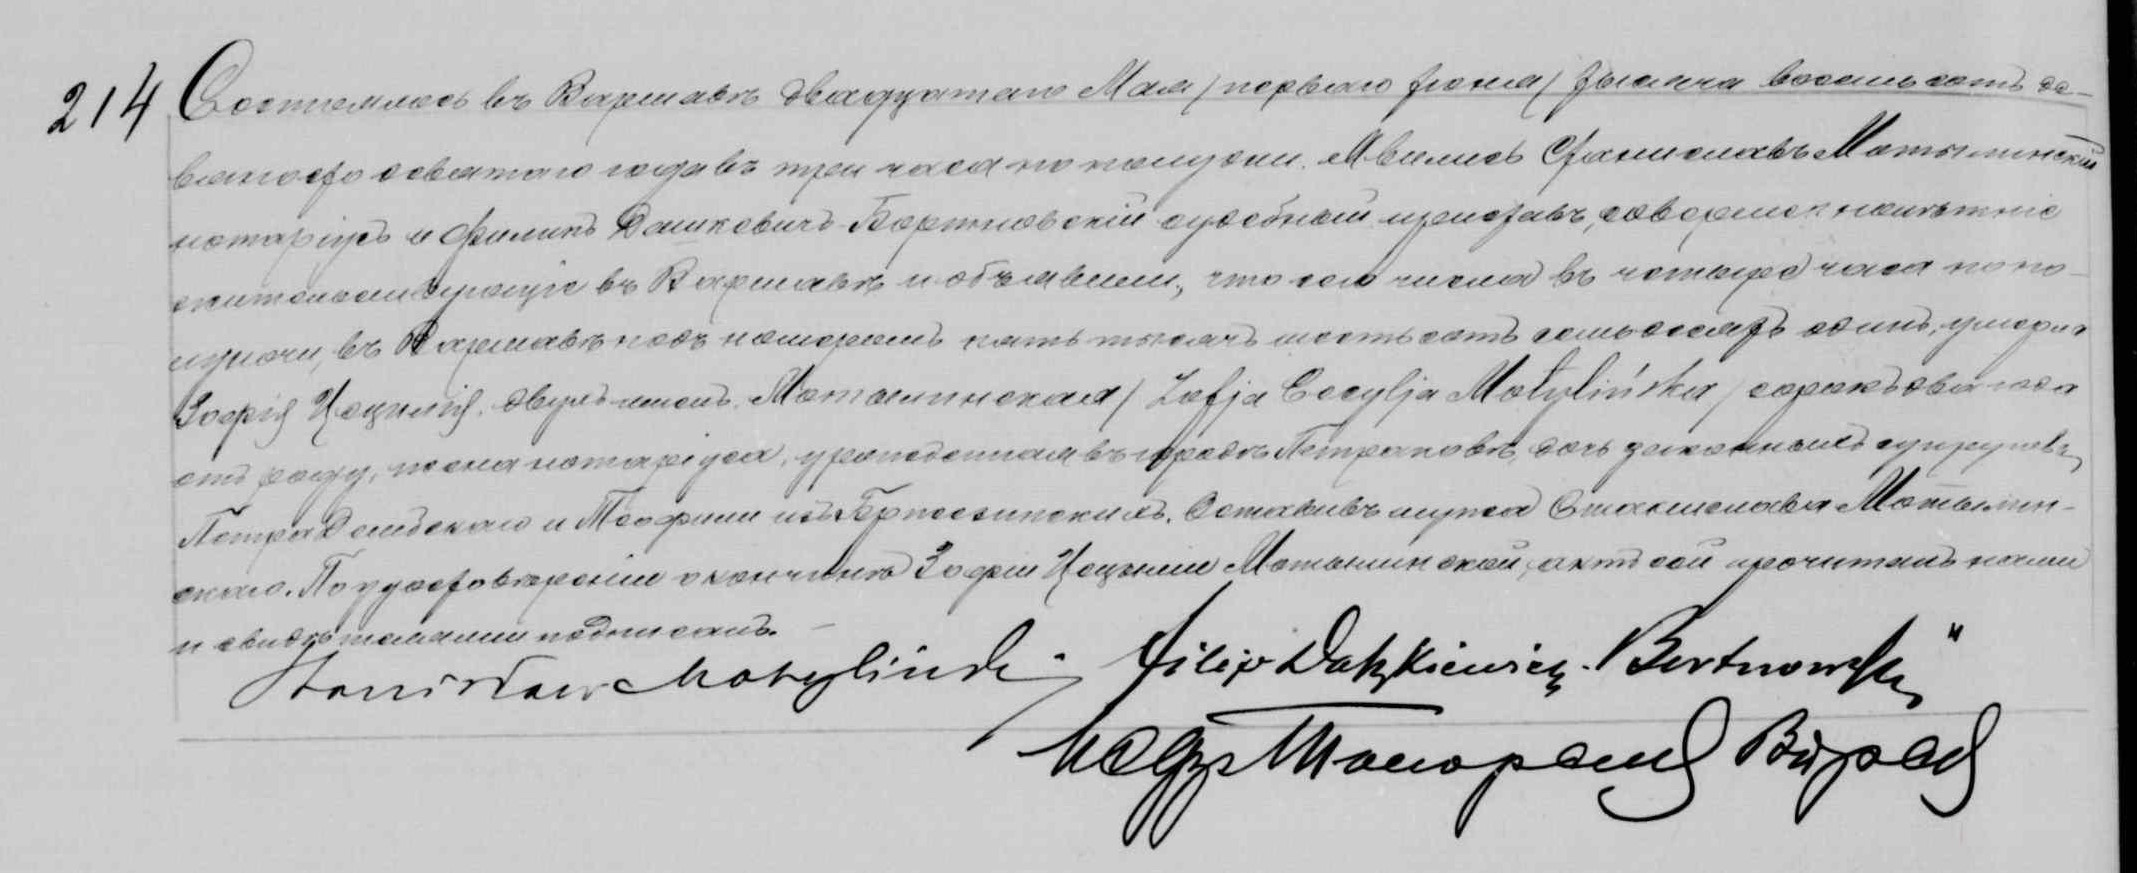 214 Состоялось въ Варшавѣ двадцатаго Мая /перваго Іюня/ тысяча восемьсотъ де-
вяносто девятаго года въ три часа по полудни. Явились Станиславъ Мотылинскій
нотаріусъ и Филипъ Дашкевичъ-Бортновскій судебный приставъ, совершеннолѣтніе
жительствующіе въ Варшавѣ и объявили, что сего числа въ четыре часа по по-
луночи, въ Варшавѣ подъ номеромъ пять тысячъ шестьсотъ семьдесятъ одинъ, умерла
Зофія Цецилія, двухъ именъ, Мотылинская /Zofja Cecylja Motylińska/ сорокъ два года
отъ роду, жена нотаріуса, урожденная въ городѣ Петроковѣ, дочь законныхъ супруговъ,
Петра и Теофили изъ. Оставивъ мужа Станислава Мотылин-
скаго. По удостовѣреніи о кончинѣ Зофіи Цециліи Мотылинской, актъ сей прочитанъ нами
и свидѣтелями подписанъ.
Stanisław Motyliński Filip Daszkiewicz-Bortnowski